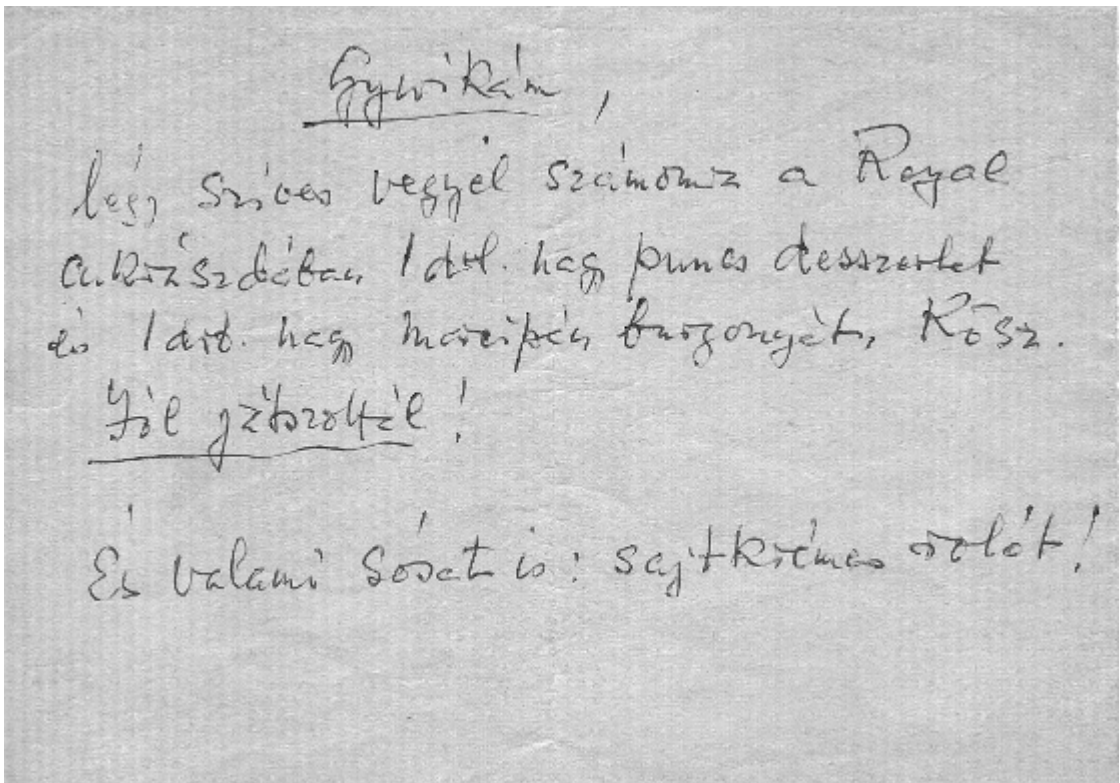 Gyurikám,
légy szíves vegyél számomra a Royal
cukrászdában 1 drb. nagy puncs desszertet
és 1 drb. nagy marcipán burgonyát, Kösz.
Jól játszottál!
És valami sósat is: sajtkrémes rolót!